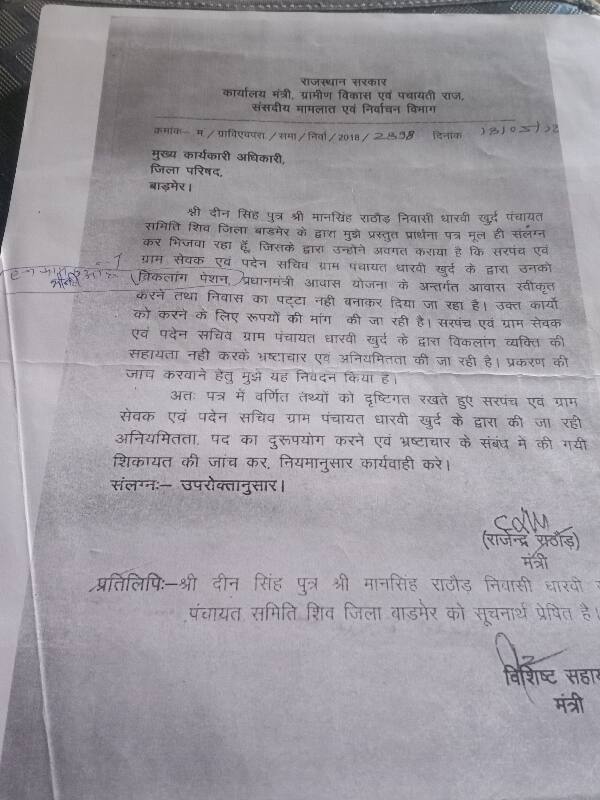 राजस्थान सरकार
कार्यालय मंत्री, ग्रामीण विकास एवं पचायती राज,
संसदीय मामलात एवं निर्वाचन विभाग
कमांक- म / ग्राविएवपरा / समा / निर्वा / 2018 / 2398 दिनांक
मुख्य कार्यकारी अधिकारी,
जिला परिषद,
बाड़मेर।
श्री दीन सिह पुत्र श्री मानसिंह राठौड़ निवासी धारवी खुर्द पंचायत
समिति शिव जिला बाडमेर के द्वारा मुझे प्रस्तुत प्रार्थना पत्र मूल ही संलग्न
कर भिजवा रहा हूँ, जिसके द्वारा उन्होने अवगत कराया है कि सरपंच एवं
ग्राम सेवक एवं पदेन सचिव ग्राम पंचायत धारवी खुर्द के द्वारा उनको
विकलांग पेशन, प्रधानमंत्री आवास योजना के अन्तर्गत आवास स्वीकृत
करने तथा निवास का पट्टा नही बनाकर दिया जा रहा है। उक्त कार्यो
को करने के लिए रूपयों की मांग की जा रही है। सरपंच एवं ग्राम सेवक
एवं पदेन सचिव ग्राम पंचायत धारवी खुर्द के द्वारा विकलांग व्यक्ति की
सहायता नही करके भ्रष्टाचार एवं अनियमितता की जा रही है। प्रकरण की
जांच करवाने हेतु मुझे यह निवेदन किया है।
अतः पत्र में वर्णित तथ्यों को दृष्टिगत रखते हुए सरपंच एवं ग्राम
सेवक एवं पदेन सचिव ग्राम पंचायत धारवी खुर्द के द्वारा की जा रही
अनियमितता, पद का दुरूपयोग करने एवं भ्रष्टाचार के संबंध में की गयी
शिकायत की जांच कर, नियमानुसार कार्यवाही करे।
संलग्नः– उपरोक्तानुसार।
(राजेन्द्र राठौड़)
मंत्री
प्रतिलिपिः–श्री दीन सिंह पुत्र श्री मानसिंह राठौड़ निवासी धारवी
पंचायत समिति शिव जिला बाडमेर को सूचनार्थ प्रेषित है।
विशिष्ट सहा
मंत्री